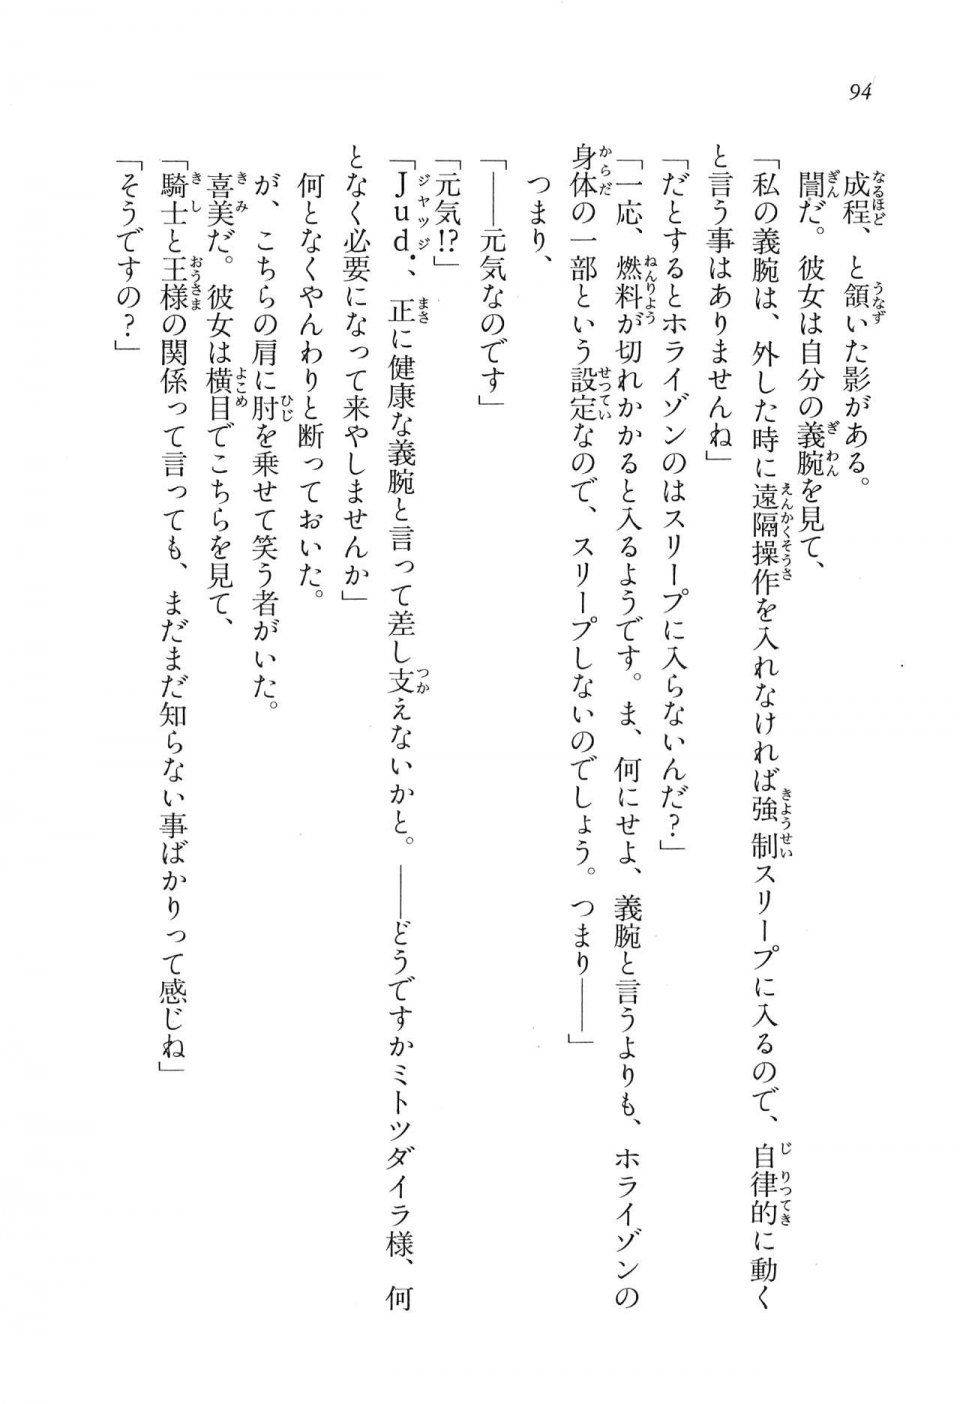 94
成程、と頷いた影がある。
誾だ。彼女は自分の義腕を見て、
「私の義腕は、外した時に遠隔操作を入れなければ強制スリープに入るので、自律的に動く
と言う事はありませんね」
「だとするとホライゾンのはスリープに入らないんだ？」
「一応、燃料が切れかかると入るようです。ま、何にせよ、義腕と言うよりも、ホライゾンの
身体の一部という設定なので、スリープしないのでしょう。つまり――」
つまり、
「――元気なのです」
「元気!?」
「Jud.、正に健康な義腕と言って差し支えないかと。――どうですかミトツダイラ様、何
となく必要になって来やしませんか」
何となくやんわりと断っておいた。
が、こちらの肩に肘を乗せて笑う者がいた。
喜美だ。彼女は横目でこちらを見て、
「騎士と王様の関係って言っても、まだまだ知らない事ばかりって感じね」
「そうですの？」